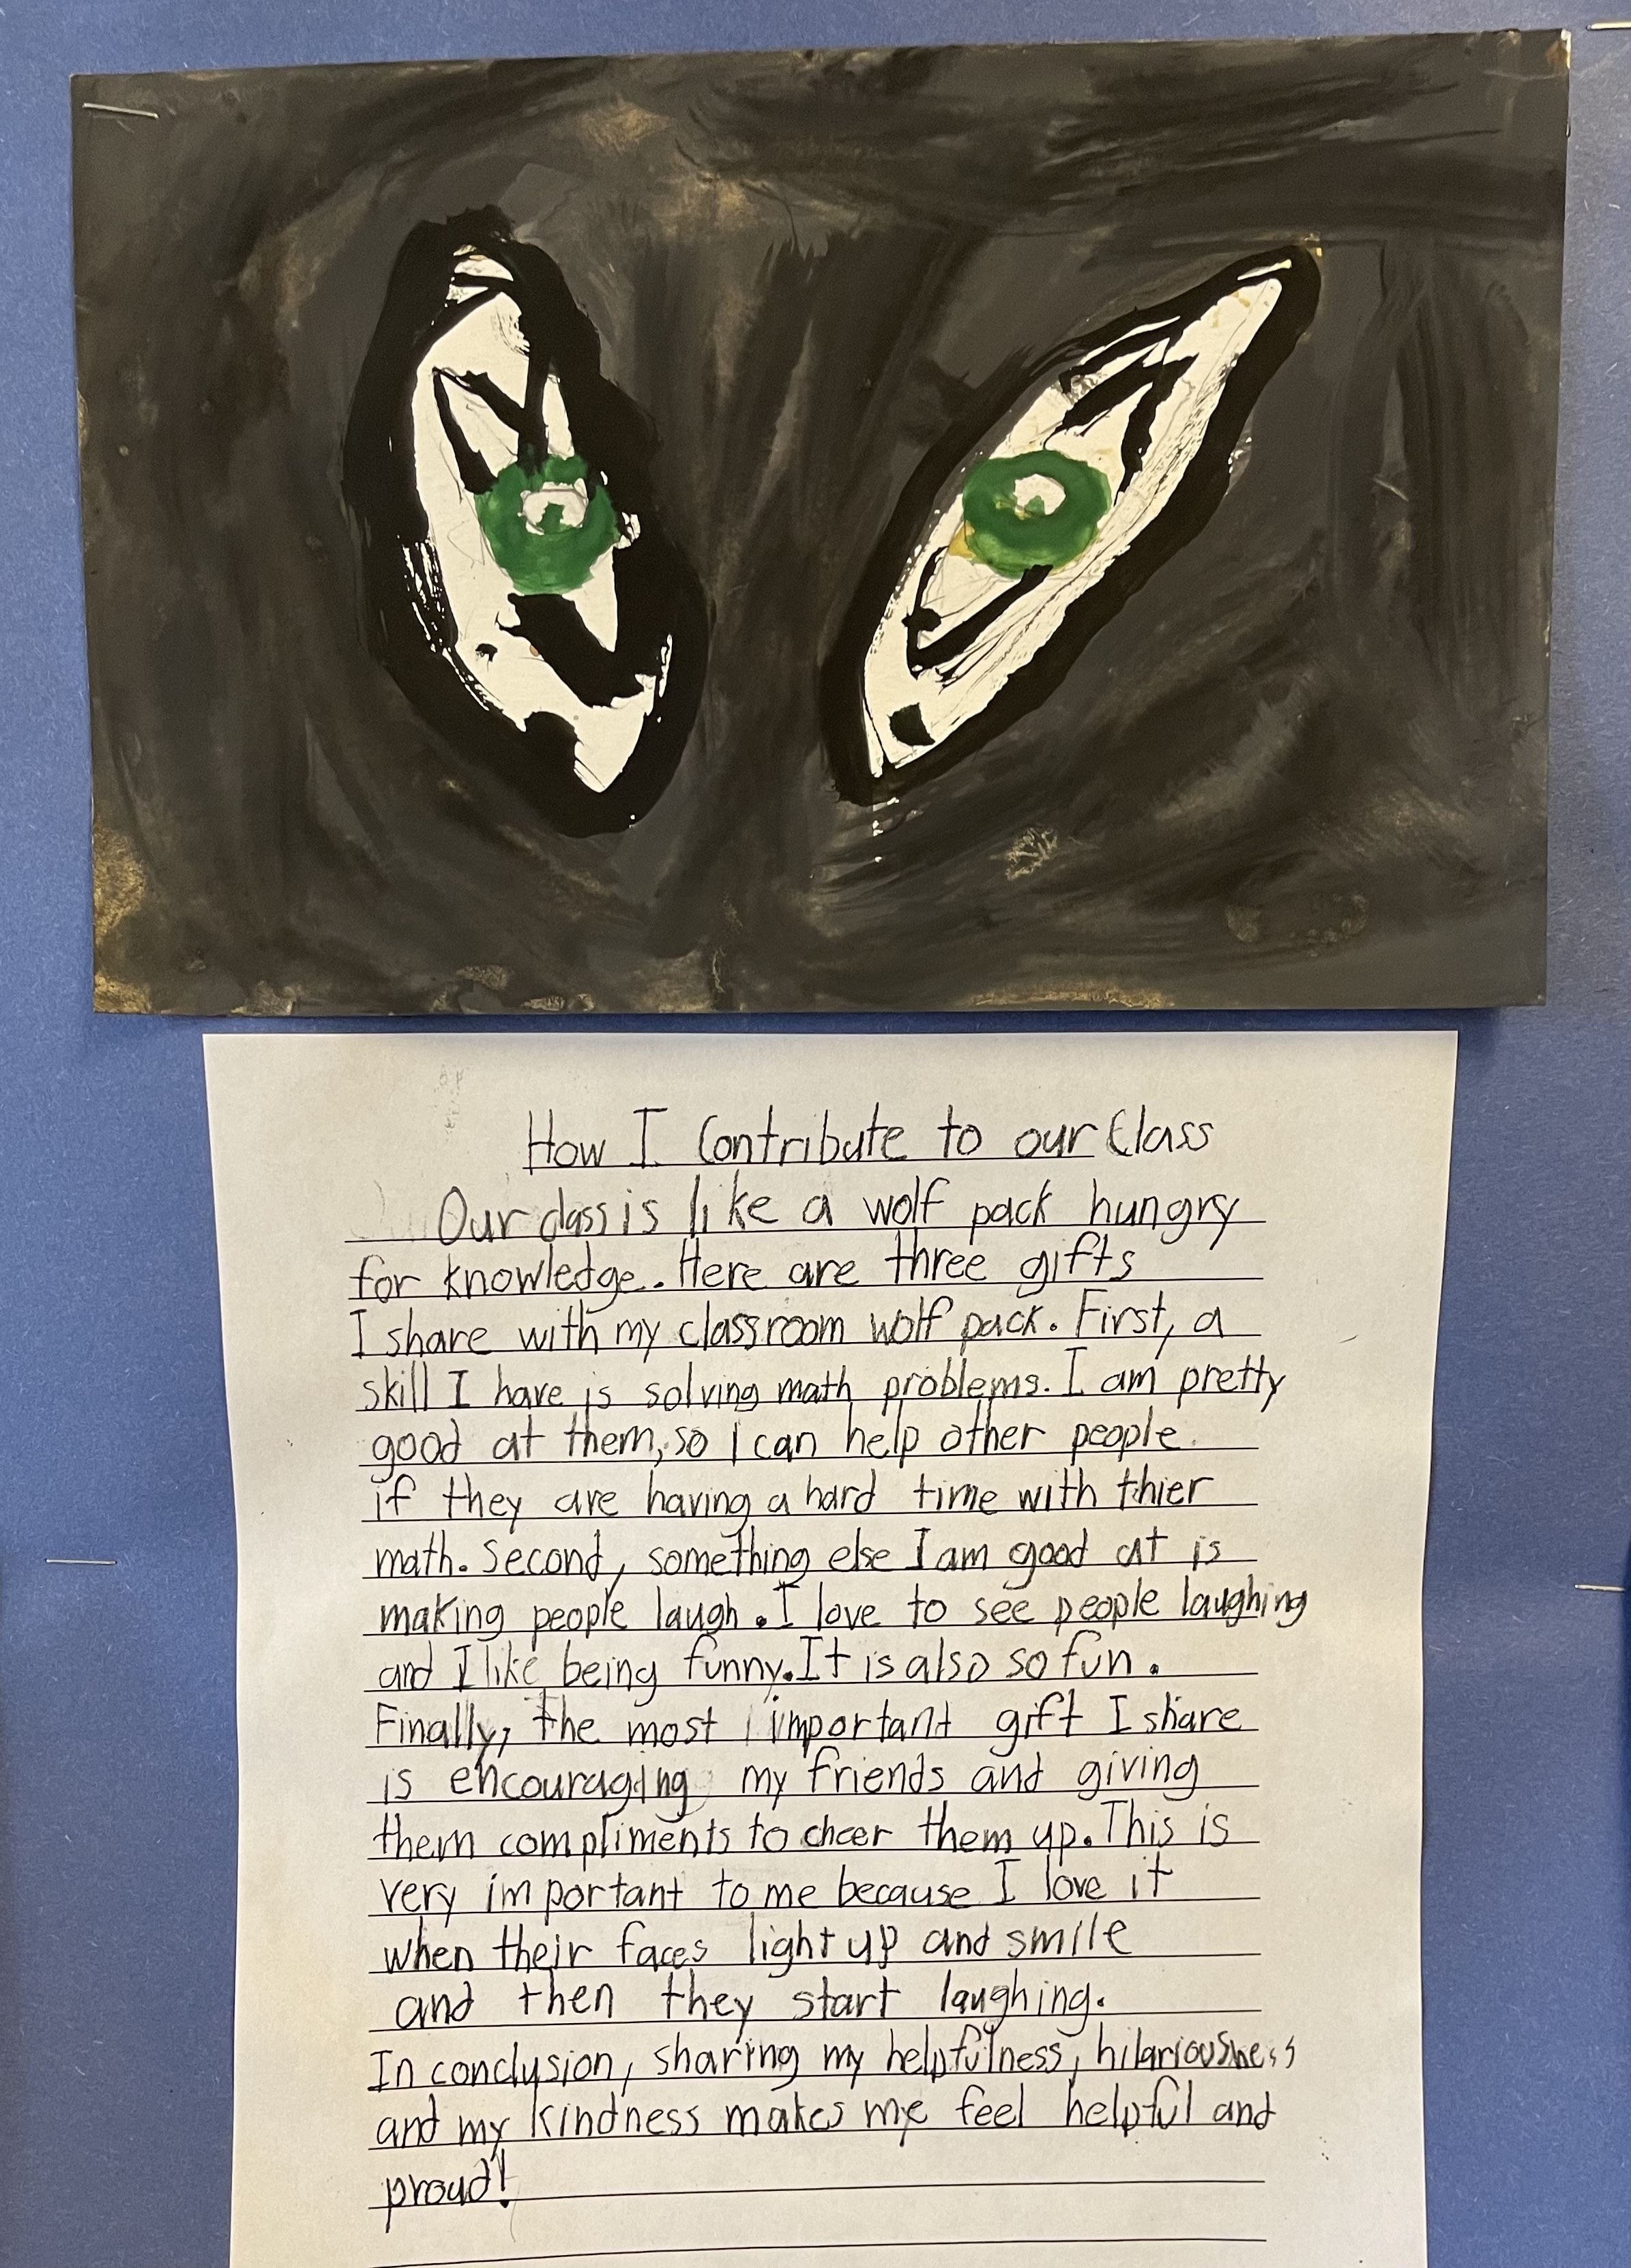 How I Contribute to our Class
Our class is like a wolf pack hungry
for knowledge. Here are three gifts
I share with my classroom wolf pack. First, a
skill I have is solving math problems. I am pretty
good at them, so I can help other people
if they are having a hard time with thier
math. Second, something else I am good at is
making people laugh. I love to see people laughing
and I like being funny. It is also so fun.
Finally, the most important gift I share
is encouraging my friends and giving
them compliments to cheer them up. This is
very important to me because I love it
when their faces light up and smile
and then they start laughing.
In conclusion, sharing my helpfulness, hilariousness
and my kindness makes me feel helpful and
proud!